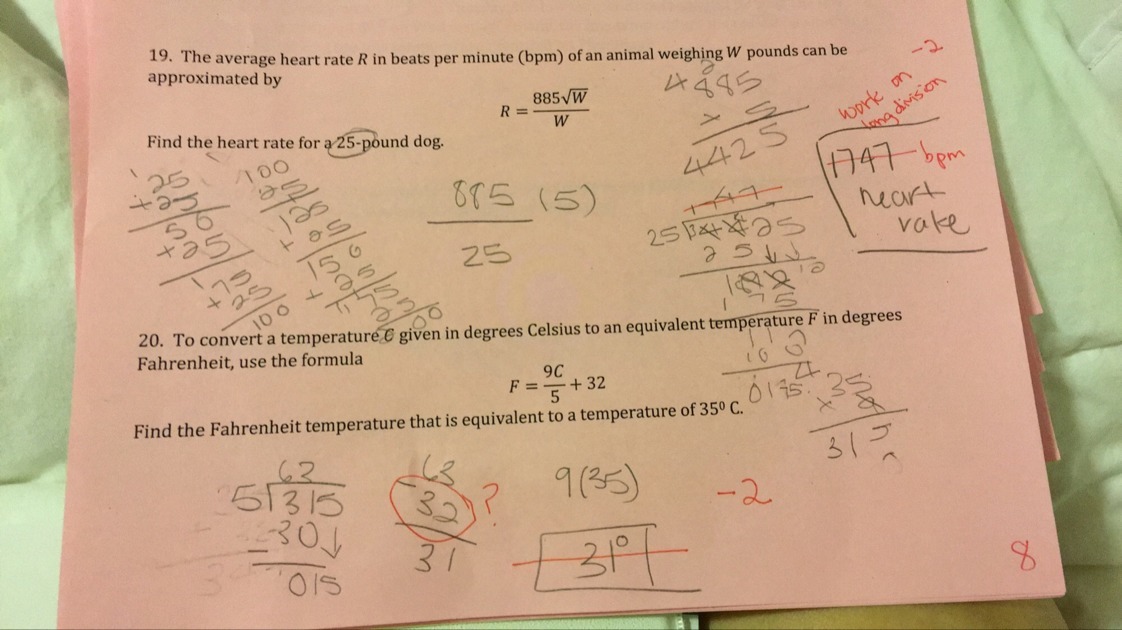 19. The average heart rate R in beats per minute (bpm) of an animal weighing W pounds can be
approximated by
R = 885√W / W
Find the heart rate for a 25-pound dog.
-2
work on
long division
1747 bpm
heart
rate
885
x 5
4425
885 (5)
25
25
+25
50
+25
75
+25
100
100
25
125
+
150
20. To convert a temperature C given in degrees Celsius to an equivalent temperature F in degrees
Fahrenheit, use the formula
F = 9C / 5 + 32
Find the Fahrenheit temperature that is equivalent to a temperature of 35⁰ C.
4
35
x
315
63
5 315
-30
015
-63
32 ?
31
9(35)
31⁰
-2
8